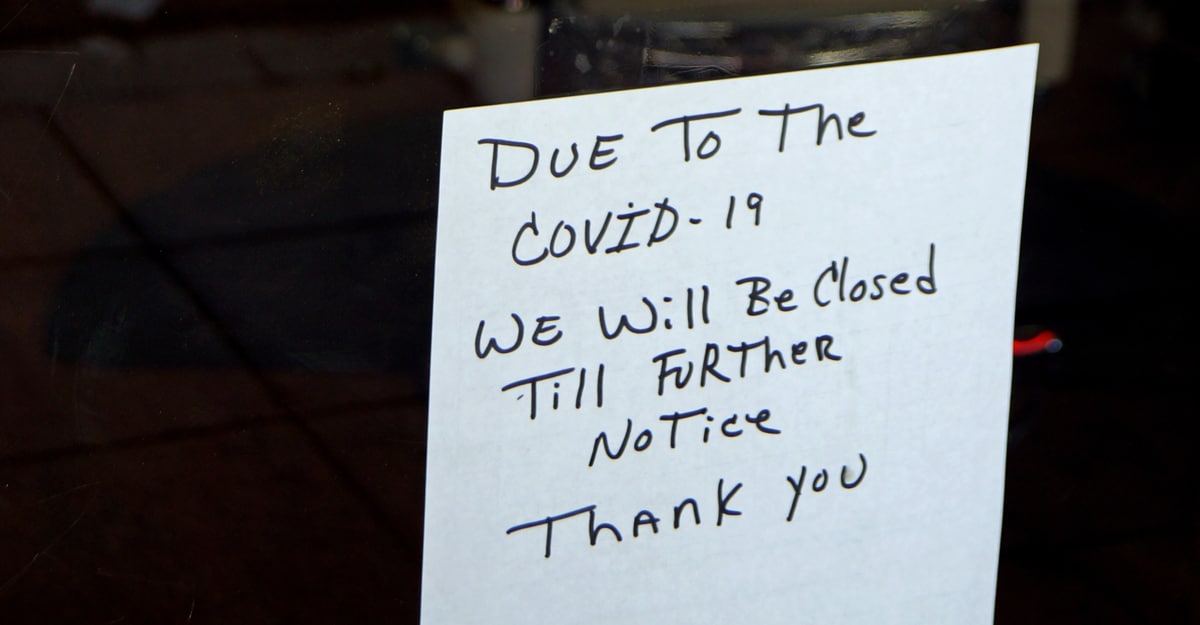 DUE To The
COVID-19
WE Will Be Closed
Till FuRTheR
NoTice
ThAnK you